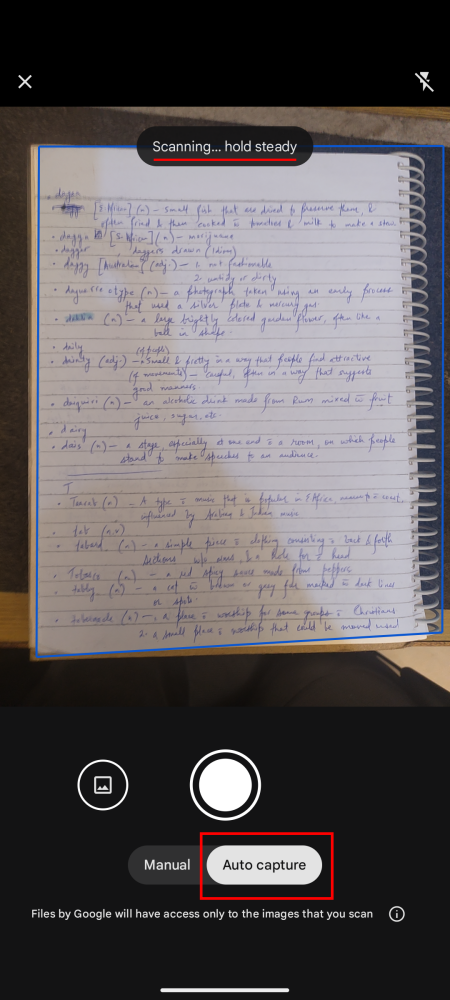 Scanning... hold steady
dagaa
[E. African] (n) – small fish that are dried to preserve them, &
often fried & then cooked tomatoes & milk to make a stew
dagga [S. African] (n) – marijuana
dagger, daggers drawn (idiom)
daggy [Australian] (adj.) – 1. not fashionable
2. untidy or dirty
daguerreotype (n) – a photograph taken using an early process
that used a silver plate & mercury gas
dahlia (n) – a large brightly colored garden flower, often like a
ball in shape.
daily
dainty (adj.) – (of people) small & pretty in a way that people find attractive
(of movements) – careful, often in a way that suggests
good manners
daiquiri (n) – an alcoholic drink made from Rum mixed fruit
juice, sugar, etc.
dairy
dais (n) – a stage especially at one end a room, on which people
stand to make speeches to an audience.
T
Taarab (n) – A type music that is popular in E Africa,
influenced by Arabic & Indian music
tab (n,v)
tabard (n) – a simple piece clothing consisting back & forth
sections w/o sleeves, & a hole for head
Tabasco (n) – a red spicy sauce made from peppers
tabby (n) – a cat brown or grey fur marked dark lines
or spots.
tabernacle (n) – 1. a place worship for some groups Christians
2. a small place worship that could be moved used
Manual
Auto capture
Files by Google will have access only to the images that you scan